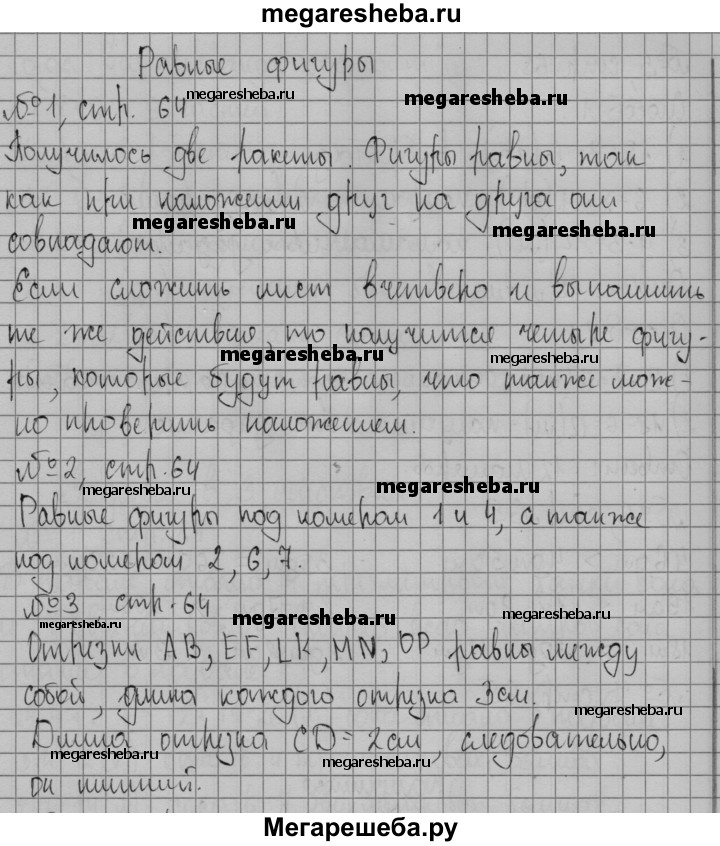 megaresheba.ru
Равные фигуры
megaresheba.ru
megaresheba.ru
№1, стр. 64
Получилось две ракеты. Фигуры равны, так
как при наложении друг на друга они
megaresheba.ru
megaresheba.ru
совпадают.
Если сложить лист вчетверо и выполнить
те же действия, то получится четыре фигу-
megaresheba.ru
megaresheba.ru
ры, которые будут равны, что также мож-
но проверить наложением.
№2, стр. 64
megaresheba.ru
megaresheba.ru
Равные фигуры под номером 1 и 4, а также
под номером 2, 6, 7.
№3 стр. 64
megaresheba.ru
megaresheba.ru
megaresheba.ru
Отрезки AB, EF, LK, MN, OP равны между
собой, длина каждого отрезка 3см.
megaresheba.ru
Длина отрезка CD = 2см, следовательно,
megaresheba.ru
megaresheba.ru
он лишний.
Мегарешеба.ру